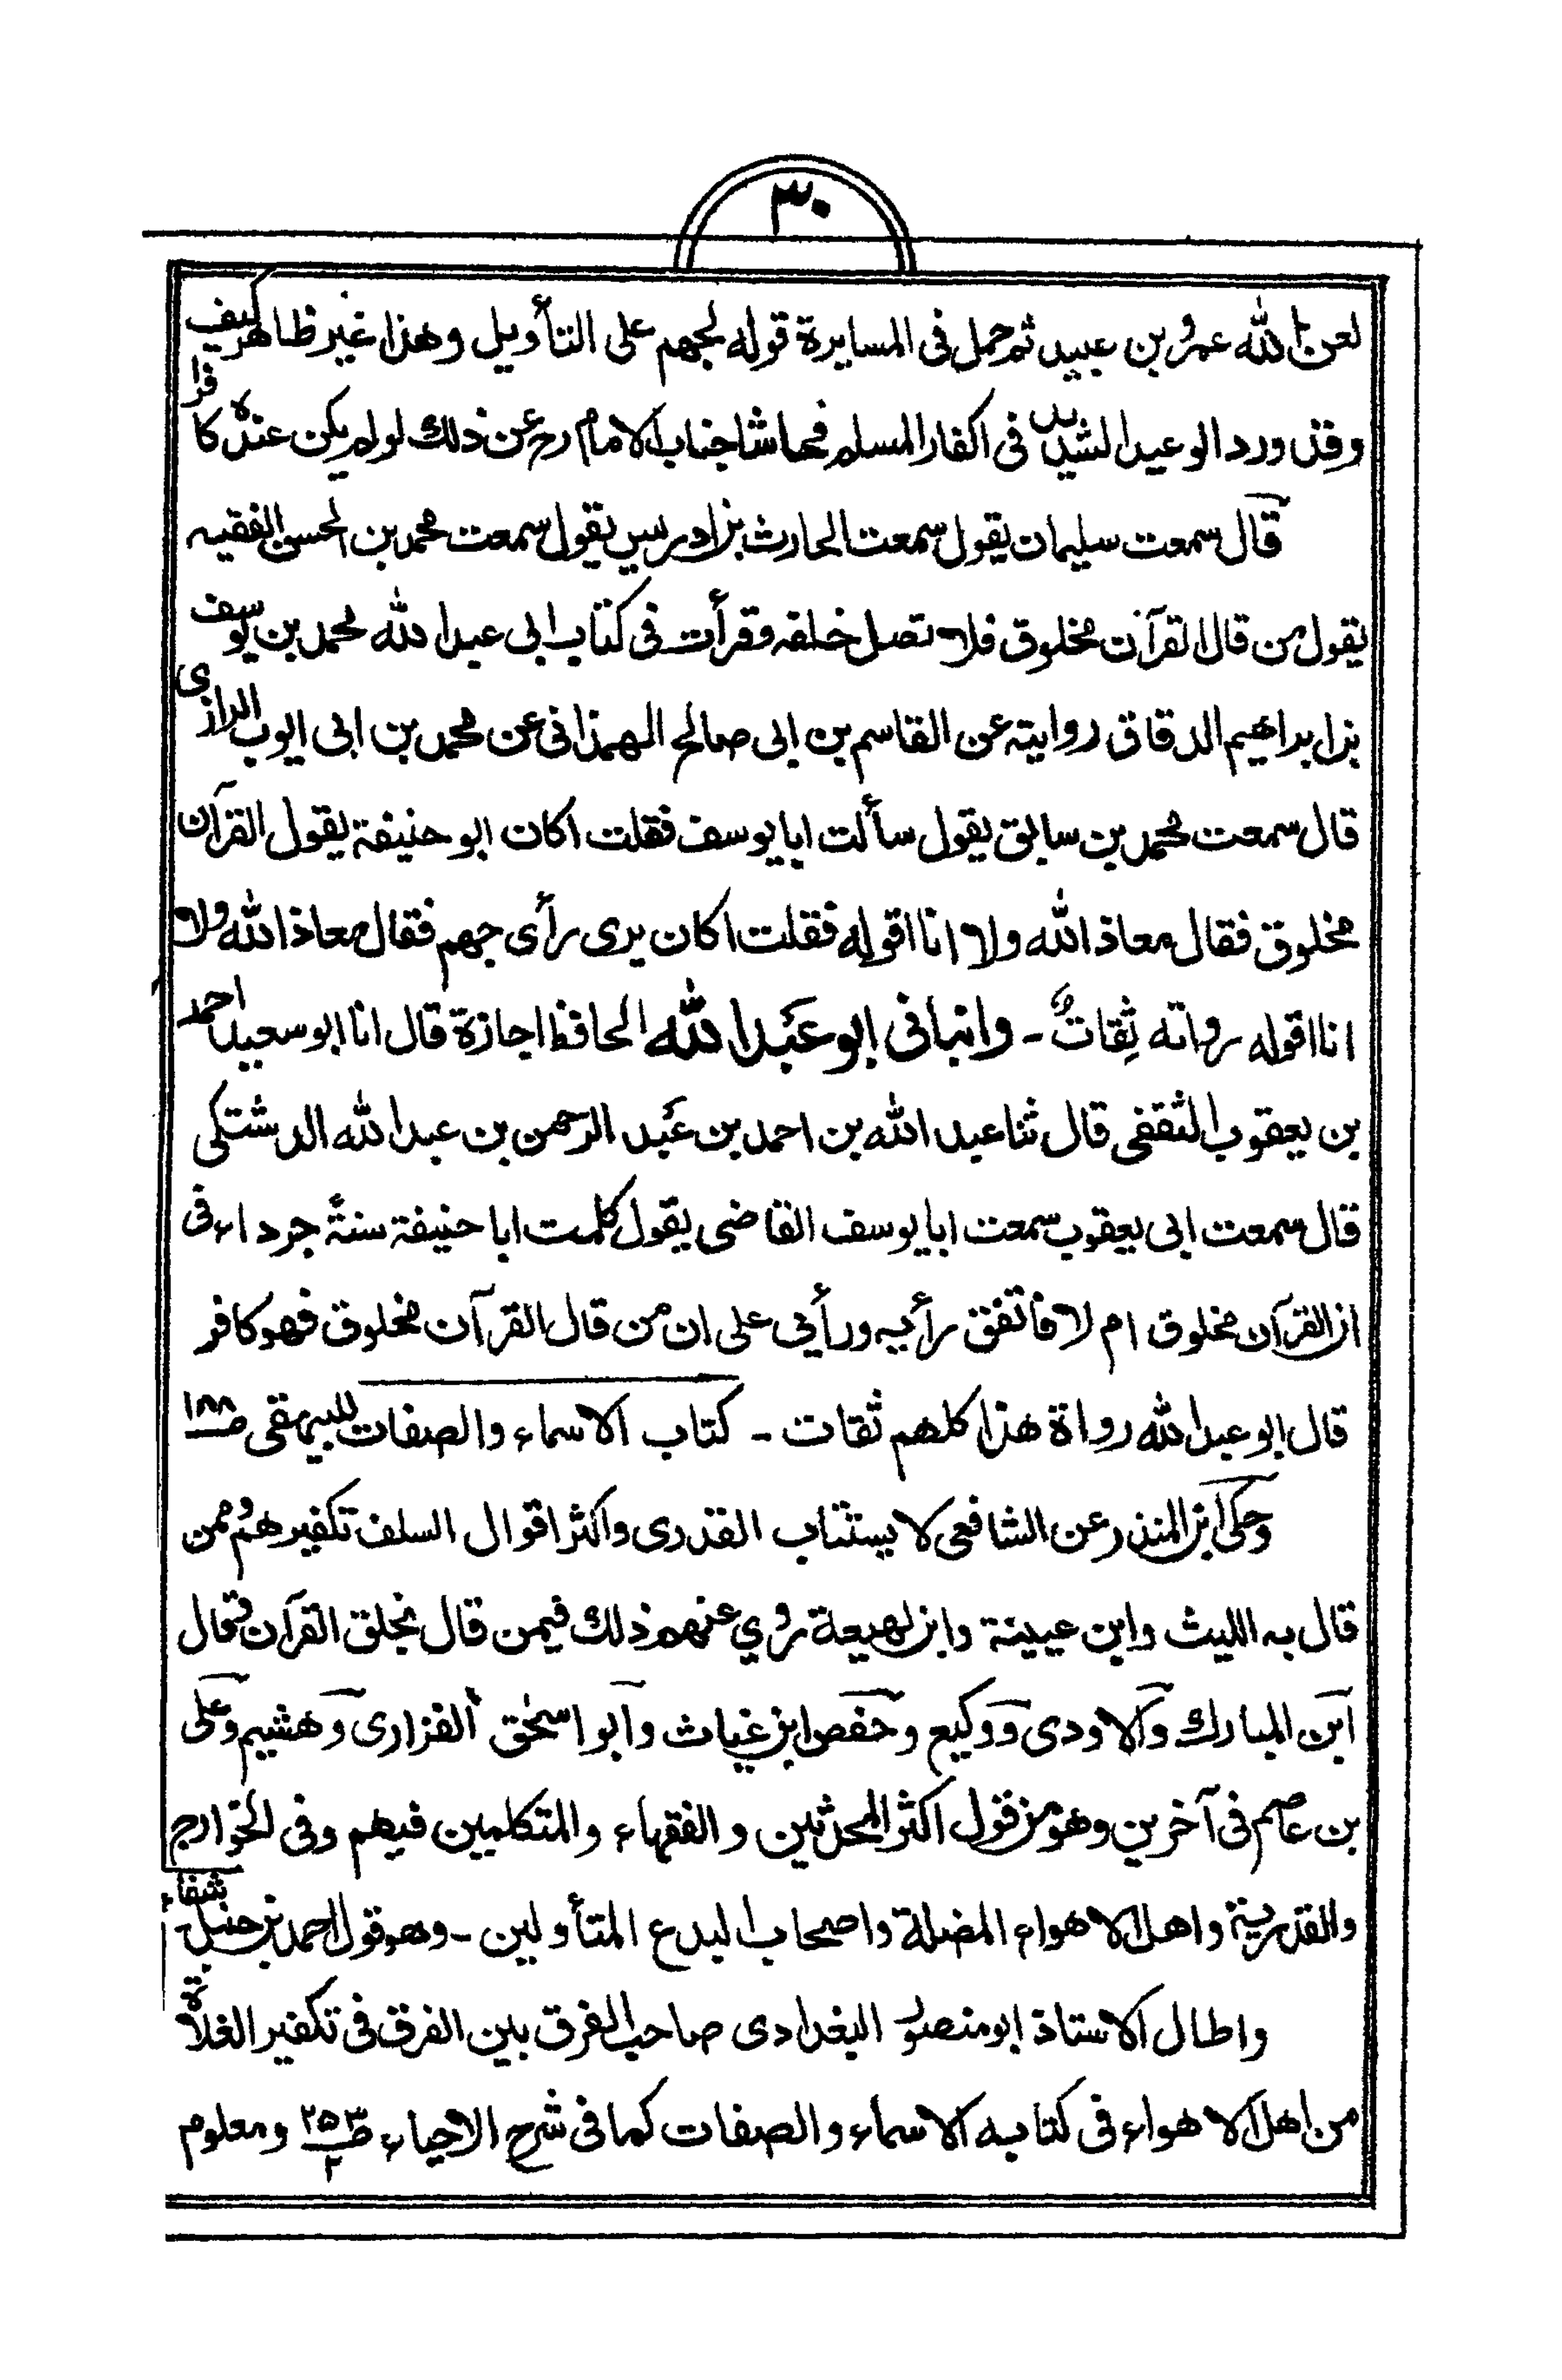 ٣٠
لعن الله عمرو بن عبيد ثم حمل فى المسايرة قوله لجهم على التأويل وهذا غير ظاهر كيف
وقد ورد الوعيد الشديد فى اكفار المسلم فحاشا جناب الامام رح عن ذلك لو لم يكن عنده كافرا
قال سمعت سليمان يقول سمعت الحارث بن ادريس يقول سمعت محمد بن الحسن الفقيه
يقول من قال القرآن مخلوق فلا تصل خلفه وقرأت فى كتاب ابى عبد الله محمد بن يوسف
بن ابراهيم الدقاق روايته عن القاسم بن ابى صالح الهمذانى عن محمد بن ابى ايوب الرازى
قال سمعت محمد بن سابق يقول سألت ابا يوسف فقلت اكان ابو حنيفة يقول القرآن
مخلوق فقال معاذ الله ولا انا اقوله فقلت اكان يرى رأى جهم فقال معاذ الله ولا
انا اقوله رواته ثِقاتٌ - وانبانى ابو عَبد الله الحافظ اجازة قال انا ابو سعيد احمد
بن يعقوب الثقفى قال ثنا عبد الله بن احمد بن عَبد الرحمن بن عبد الله الدشتكى
قال سمعت ابى يعقوب سمعت ابا يوسف القاضى يقول كلمت ابا حنيفة سنةً جرداء فى
ان القرآن مخلوق ام لا فاتفق رأيه ورأيى على ان من قال القرآن مخلوق فهو كافر
قال ابو عبد الله رواة هذا كلهم ثقات - كتاب الاسماء والصفات للبيهقى صـ ١٨٨
وحكى ابن المنذر عن الشافعى لا يستتاب القدرى واكثر اقوال السلف تكفيرهم وممن
قال به الليث وابن عيينة وابن لهيعة روي عنهم ذلك فيمن قال بخلق القرآن وقال
ابن المبارك والاودى ووكيع وحفص ابن غياث وابو اسحٰق الفزارى وهشيم وعلى
بن عاصم فى آخرين وهو من قول اكثر المحدثين والفقهاء والمتكلمين فيهم وفى الخوارج
والقدرية واهل الاهواء المضلة واصحاب البدع المتأولين - وهو قول احمد بن حنبل شفاء
واطال الاستاذ ابو منصور البغدادى صاحب الفرق بين الفرق فى تكفير الغلاة
من اهل الاهواء فى كتابه الاسماء والصفات كما فى شرح الاحياء صـ ٢٥٣/٢ ومعلوم